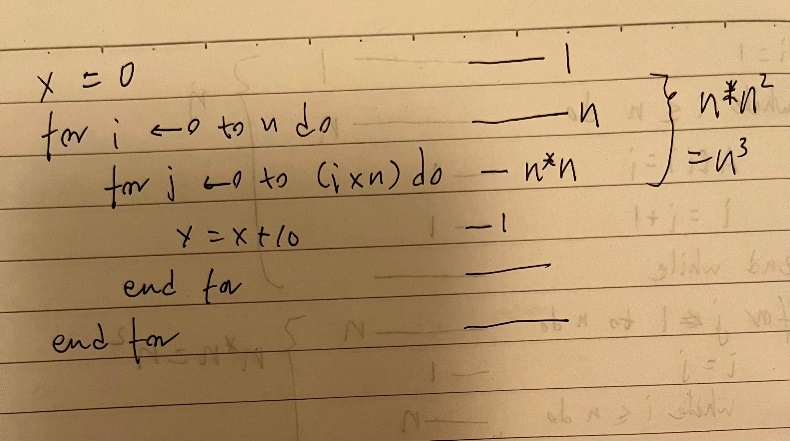 x = 0 —— 1
for i ← 0 to n do —— n } n*n²
for j ← 0 to (i x n) do — n*n = n³
x = x + 10 — 1
end for ——
end for ——